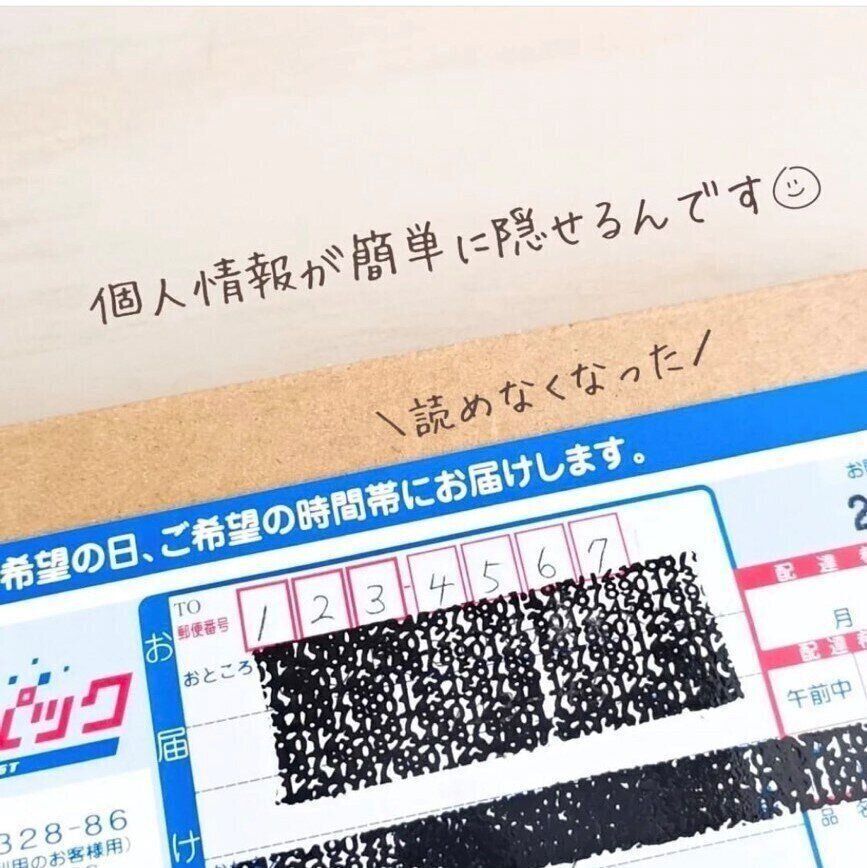 個人情報が簡単に隠せるんです
\読めなくなった/
希望の日、ご希望の時間帯にお届けします。
TO
郵便番号
123-4567
おところ
お届け
パック
ST
328-86
利用のお客様用)
配達
月
配達
午前中
品名